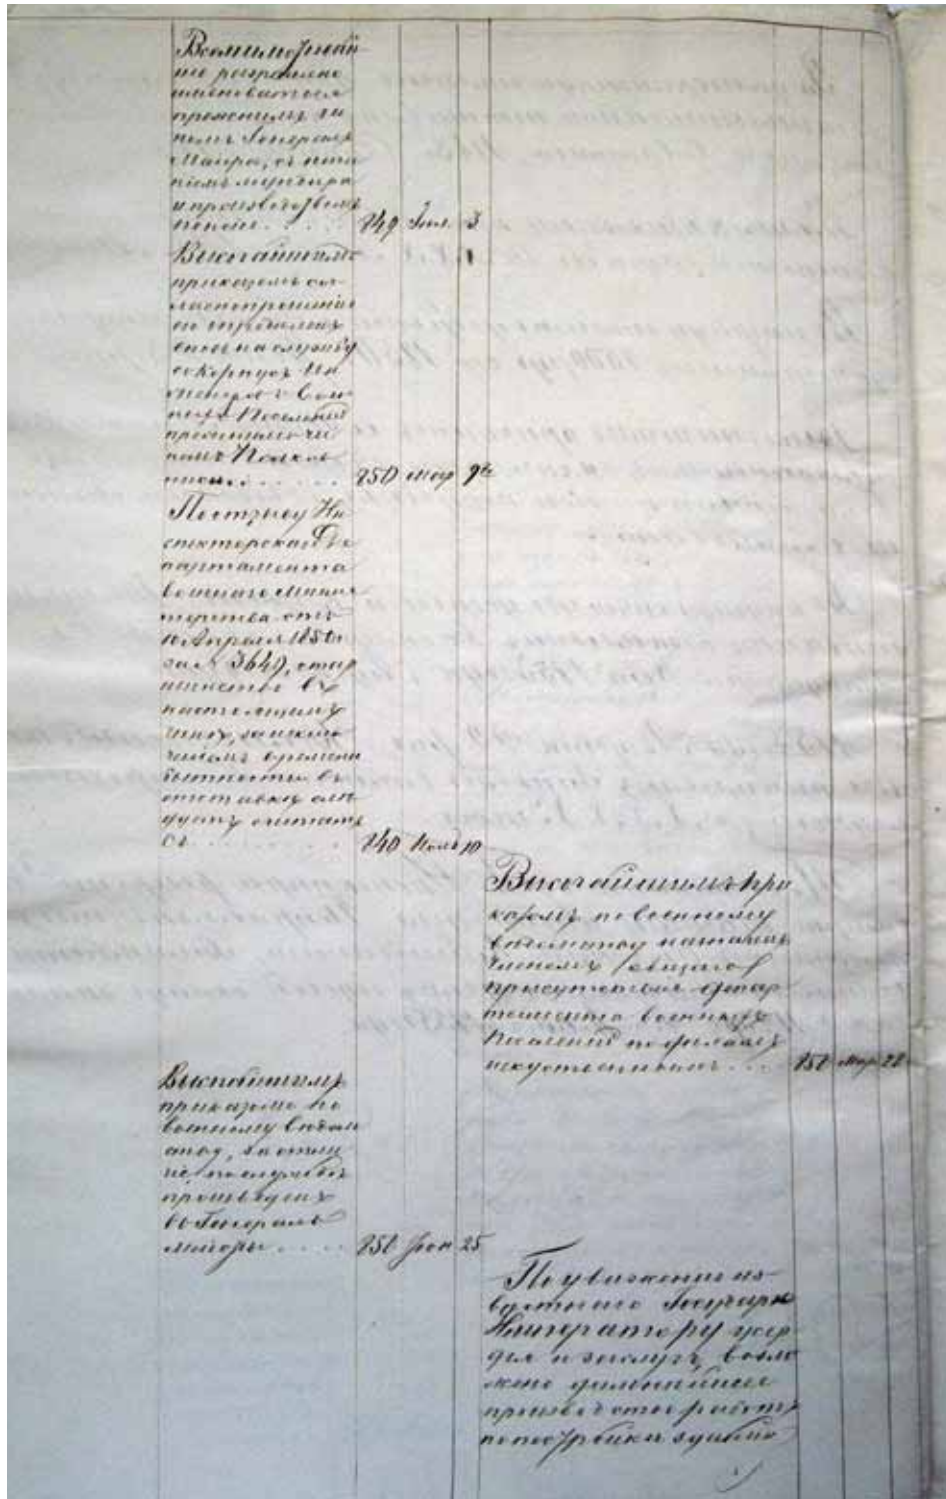 Всемилостивѣй
ше разрѣшено
именоваться
прежнимъ чи
номъ Генералъ
Маіора, съ ноше
ніемъ мундира
и производствомъ
пенсіи . . . . 849 Іюл. 3
Высочайшимъ
приказомъ со
гласно прошенію
его опредѣленъ
вновь на службу
въ Корпусъ Ин
женеровъ Воен
ныхъ Поселеній
прежнимъ чи
номъ Полков
никомъ . . . . . 850 Мар
По отзыву Ин
спекторскаго Де
партамента
Военнаго Минис
терства отъ
10 Апрѣля 1850 г.
за № 3649, стар
шинство въ
настоящемъ
чинѣ, за исклю
ченіемъ времени
бытности въ
отставкѣ слѣ
дуетъ считать
съ . . . . . . . . 840 10
Высочайшимъ при
казомъ по военному
вѣдомству назначенъ
Членомъ Общаго
Присутствія Депар
тамента Военныхъ
Поселеній по дѣламъ
искуственнымъ . . . 851 Мар 22
Высочайшимъ
приказомъ по
военному вѣдом
ству, за отли
чіе по службѣ
произведенъ
въ Генералъ
маіоры . . . . 851 25
По уваженію из
вѣстнаго Государю
Императору усер
дія и заслугъ, возло
жено дальнѣйшее
производство работъ
по постройкѣ зданія